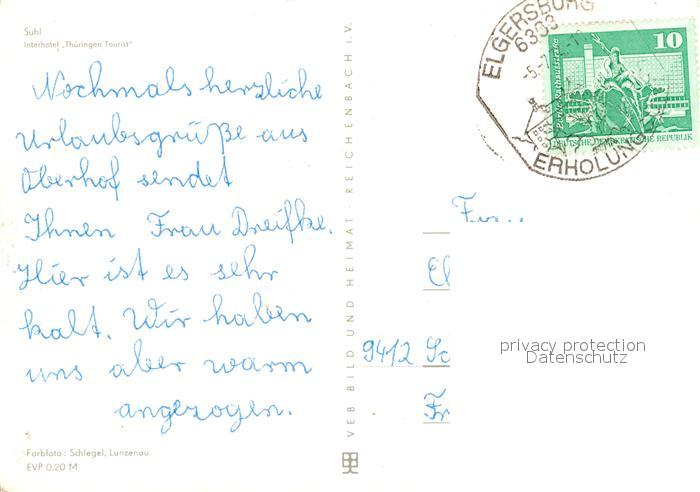 Suhl
Interhotel „Thüringen Tourist"
Nochmals herzliche
Urlaubsgrüße aus
Oberhof sendet
Ihnen Frau Dreifke.
Hier ist es sehr
kalt. Wir haben
uns aber warm
angezogen.
Farbfoto: Schlegel, Lunzenau
EVP 0,20 M
VEB BILD UND HEIMAT REICHENBACH i.V.
ELGERSBURG
6303
ERHOLUNG
10
DEUTSCHE DEMOKRATISCHE REPUBLIK
9412
privacy protection
Datenschutz